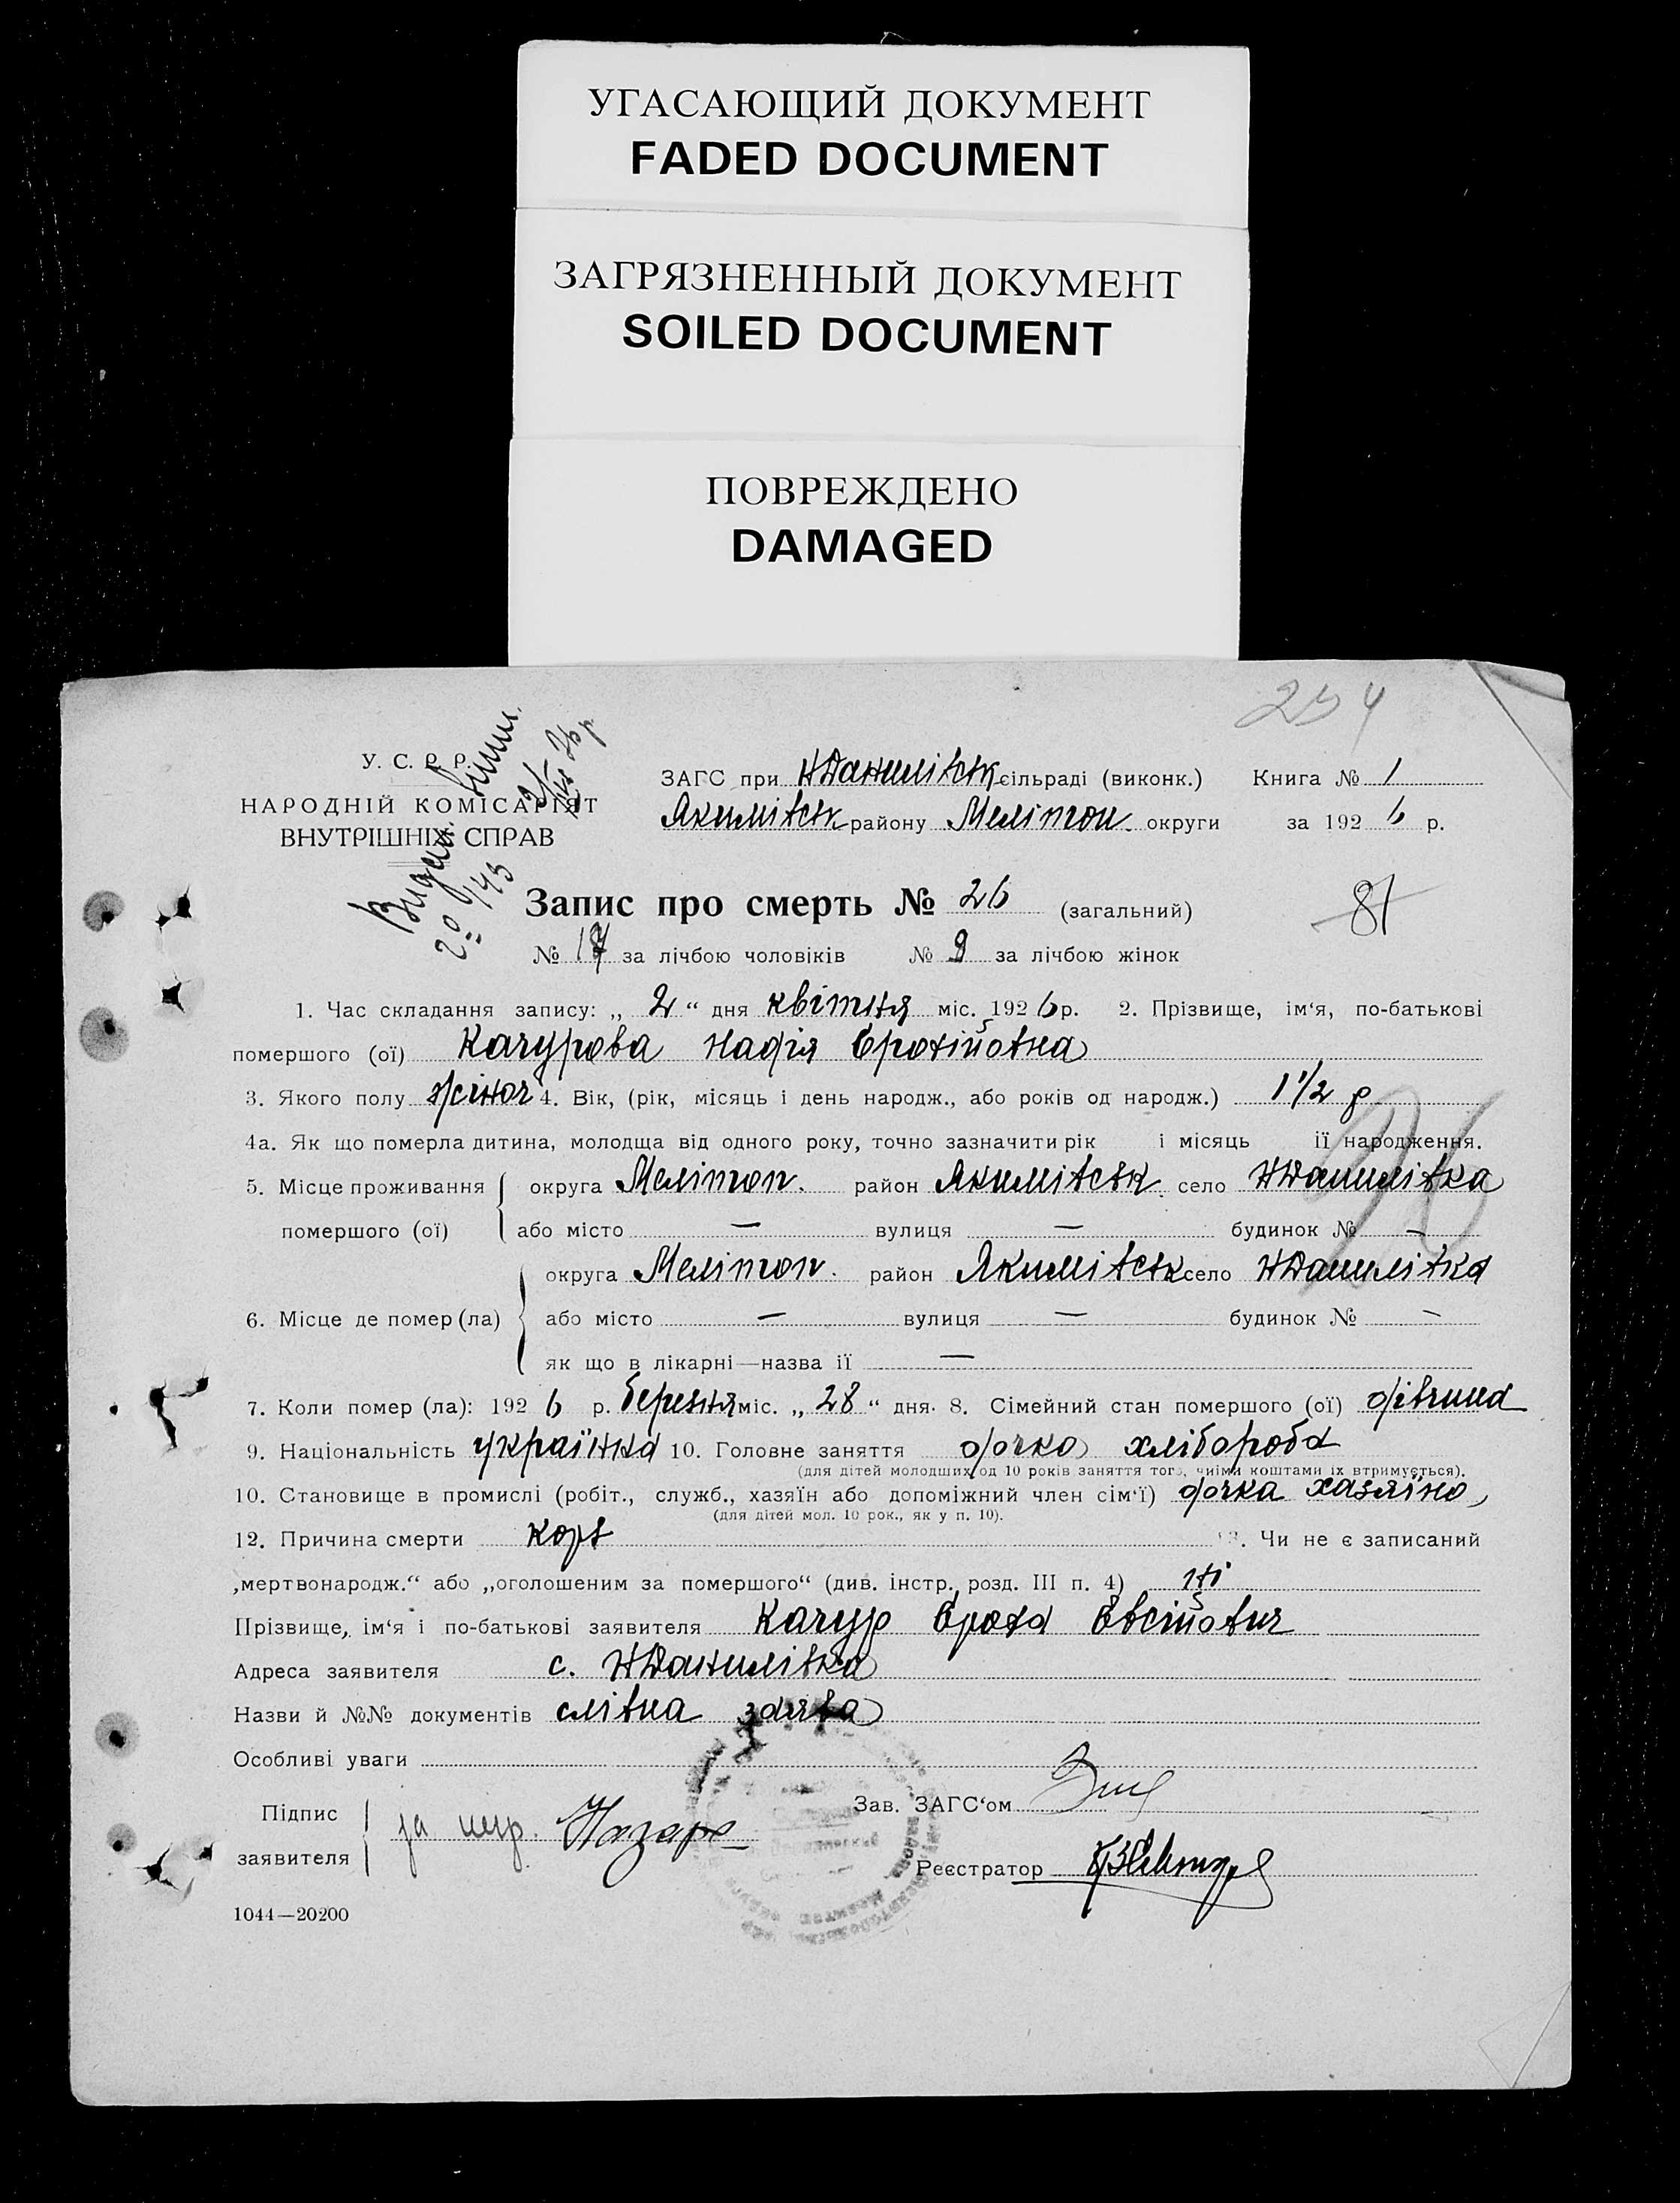 УГАСАЮЩИЙ ДОКУМЕНТ
FADED DOCUMENT
ЗАГРЯЗНЕННЫЙ ДОКУМЕНТ
SOILED DOCUMENT
ПОВРЕЖДЕНО
DAMAGED
254
У. С. Р. Р.
НАРОДНІЙ КОМІСАРІЯТ
ВНУТРІШНІХ СПРАВ
ЗАГС при НДанилівськ сільраді (виконк.) Книга № 1
Якимівськ району Мелітоп. округи за 1926 р.
Запис про смерть № 26 (загальний)
81
№ 17 за лічбою чоловіків № 9 за лічбою жінок
1. Час складання запису: „ 2 “ дня квітня міс. 1926 р. 2. Прізвище, ім‘я, по-батькові
помершого (ої) Качурова Надія
3. Якого полу жіноч 4. Вік, (рік, місяць і день народж., або років од народж.) 1 1/2 р
4а. Як що померла дитина, молодща від одного року, точно зазначити рік і місяць її народження.
26
5. Місце проживання округа Мелітоп. район Якимівськ село НДанилівка
помершого (ої) або місто — вулиця — будинок № —
округа Мелітоп. район Якимівськ село НДанилівка
6. Місце де помер (ла) або місто — вулиця — будинок № —
як що в лікарні—назва її —
7. Коли помер (ла): 1926 р. березня міс. „ 28 “ дня. 8. Сімейний стан помершого (ої) дівчина
9. Національність українка 10. Головне заняття дочка хлібороба
(для дітей молодших од 10 років заняття того, чиїми коштами їх втримується).
10. Становище в промислі (робіт., служб., хазяїн або допоміжний член сім‘ї) дочка хазяїна
(для дітей мол. 10 рок., як у п. 10).
12. Причина смерти корь 13. Чи не є записаний
„мертвонародж.“ або „оголошеним за помершого“ (див. інстр. розд. III п. 4) ні
Прізвище, ім‘я і по-батькові заявителя Качур Євсійович
Адреса заявителя с. НДанилівка
Назви й №№ документів слівна заява
Особливі уваги
Підпис
заявителя за нпр.
Зав. ЗАГС‘ом
Реєстратор
1044—20200